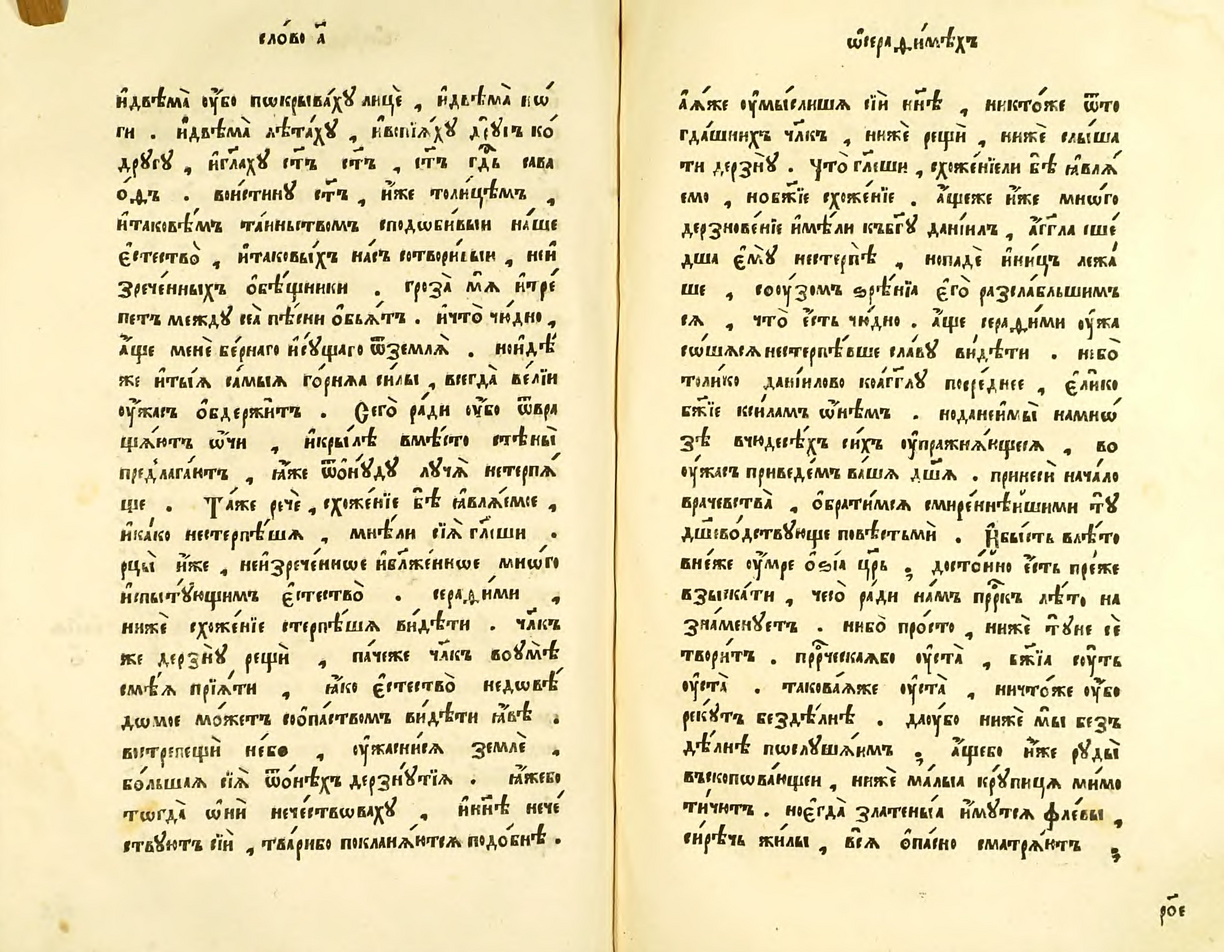 сло́во а҃
и҆двѣма̀ оу҆́бо пѡкрыва́хꙋ лицѐ , и҆двѣ́ма нѡ́
ги . и҆двѣма̀ лѣта́хꙋ , и҆вопїѧ́хꙋ дрꙋ́гъ ко
дрꙋгꙋ , и҆гл҃ахꙋ ст҃ъ ст҃ъ , ст҃ъ гд҇ь сава
ѡ҆ѳъ . вои́стинꙋ ст҃ъ , и҆́же толи́цѣмъ ,
и҆таковѣ́мъ та́иньствомъ сподѡби́выи на́ше
є҆стество̀ , и҆таковы́хъ на́съ сотвори́выи , неи
зрече́нныхъ ѻ҆бѣ́щники . гроза̀ мѧ̀ и҆тре́
петъ междꙋ̀ сеѧ̀ пѣ́сни ѻ҆бьѧ́тъ . и҆что̀ чю́дно ,
а҆́ще менѐ бе́рнаго и҆сꙋ́щаго ѿземлѧ̀ . нои҆дѣ́
же и҆ты́ѧ са́мыѧ го́рнѧѧ си́лы , всегда̀ ве́лїи
оу҆́жасъ ѻ҆бдержи́тъ . Сего̀ ра́ди оу҆́бо ѿвра
щѧ́ютъ ѡ҆́чи , и҆кры́лѣ вмѣ́сто стѣны̀
предлага́ютъ , ꙗ҆́же ѿѻнꙋ́дꙋ лꙋчѧ̀ нетерпѧ́
ще . Та́же речѐ , схоже́нїе бѣ̀ ꙗ҆влѧ́емое ,
и҆ка́ко нестерпѣ́шѧ , мнѣ́ли сїѧ̀ гл҃еши .
рцы̀ и҆́же , неи҆зрече́нное и҆бл҃же́нное мно́го
и҆спытꙋ́ющимъ є҆стество̀ . серафи́ми ,
нижѐ схоже́нїе стерпѣ́шѧ ви́дѣти . чл҃къ
же дерзнꙋ̀ рещѝ , па́чеже чл҃къ воꙋ҆мѣ̀
смѣ́ѧ прїѧ́ти , ꙗ҆́ко є҆стество̀ недовѣ́
домое мо́жетъ сопа́ствомъ ви́дѣти ꙗ҆́вѣ .
вострепещѝ не́бо , оу҆жасни́сѧ землѐ .
бо́льшаѧ сїѧ̀ ѿѻ́нѣхъ дерзнꙋ́тїѧ . ꙗ҆́жебо
тѡгда̀ ѡ҆нѝ нече́ствовахꙋ , и҆нн҃ѣ нече́
ствꙋютъ сїѝ , тва́рибо покланѧ́ютсѧ подо́бнѣ .
ѡ҆серафи́мѣхъ
а҆ѧ҆́же оу҆мы́слишѧ сїѝ нн҃ѣ , никто́же ѿто
гда́шнихъ чл҃къ , нижѐ рещѝ , нижѐ слы́ша
ти дерзнꙋ̀ . Что̀ гл҃еши , схоже́нїели бѣ̀ ꙗ҆влѧ́
емо , нобж҃їе схоже́нїе . а҆́щеже и҆́же мно́го
дерзнове́нїе и҆мѣ́ли къбг҃ꙋ данїи́лъ , а҆́гг҃ла сше́
дша є҆мꙋ̀ нестерпѣ̀ , нопадѐ и҆ни́цъ лежа́
ше , соꙋ́зомъ ѕрѣ́нїѧ є҆гѡ̀ разсла́бльшимъ
сѧ , что̀ є҆́сть чю́дно . а҆́ще серафи́ми оу҆жа
со́шасѧ нестерпѣ́вше сла́вꙋ ви́дѣти . небо̀
толи́ко данїи́лово коа҆́гг҃лꙋ посре́днее , є҆ли́ко
бж҃їе кси́ламъ ѡ҆нѣ́мъ . ноданеи҆мы̀ намно́
зѣ вчюдесѣ́хъ си́хъ оу҆пражнѧ́ющесѧ , во
оу҆́жасъ приведе́мъ ва́шѧ дш҃ѧ . принесѝ нача́ло
врачевства̀ , ѻ҆брати́мсѧ смире́ннѣйшими тꙋ̀
дш҃ѣво́дствꙋюще по́вѣстьми . И҆бы́сть влѣ́то
вне́же оу҆́мре ѻ҆ѕі́а цр҃ь , досто́йно є҆́сть пре́же
взыска́ти , чесо̀ ра́ди на́мъ прⷪ҇ркъ лѣ́то на
зна́менꙋетъ . нибо̀ про́сто , нижѐ тꙋ́не сѐ
твори́тъ . прⷪ҇рческаѧбо оу҆ста̀ , бж҃їа сꙋ́ть
оу҆ста̀ . такова́ѧже оу҆ста̀ , ничто́же оу҆́бо
рекꙋ́тъ бездѣ́лнѣ . даоу҆́бо нижѐ мы̀ безъ
дѣ́лнѣ послꙋ́шѧимъ ; а҆́щебо и҆́же рꙋды̀
въскопова́ющеи , нижѐ ма́лыѧ крꙋпи́цѧ мимо
тичю́тъ . ноє҆гда̀ злате́ныѧ и҆́мꙋтсѧ фле́вы ,
си́рѣчь жи́лы , всѧ̀ ѻ҆па́сно сматрѧ́ютъ ;
ро́е